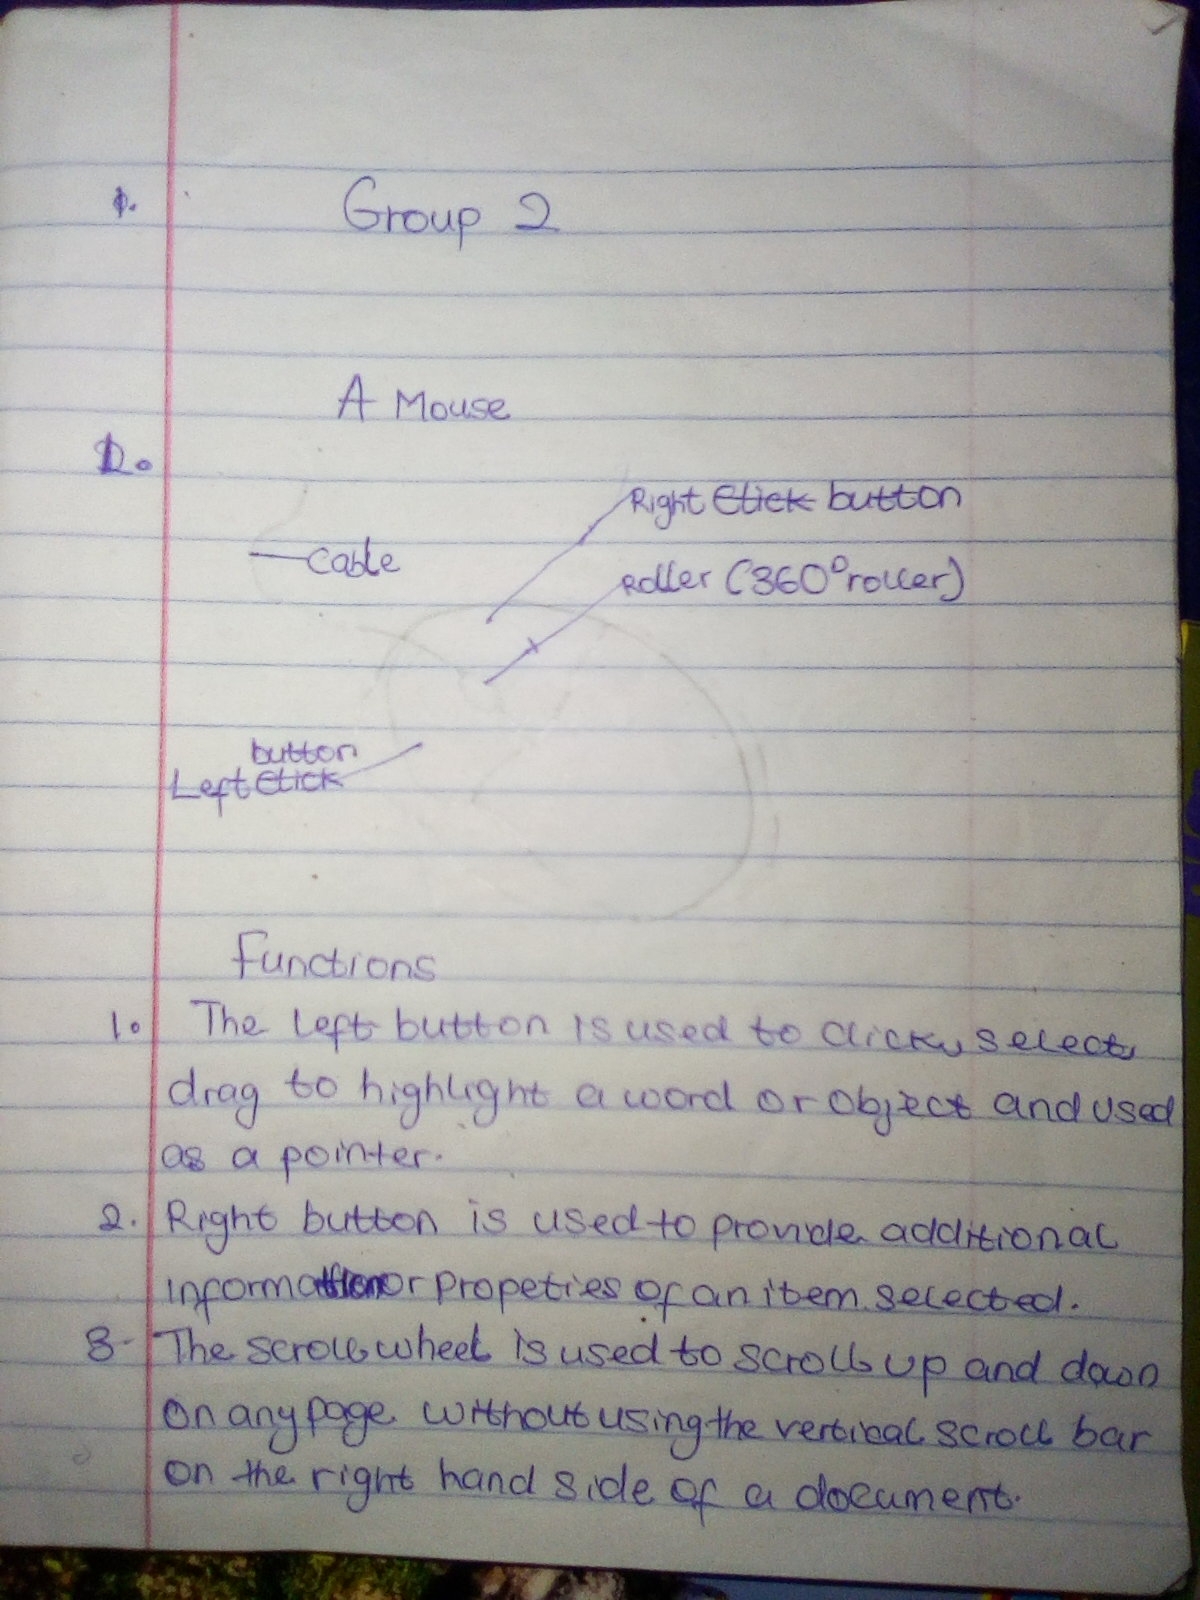 1. Group 2
A Mouse
1.
Right Click button
Cable
Roller (360° roller)
button
Left Click
Functions
1. The left button is used to click, select,
drag to highlight a word or object and used
as a pointer.
2. Right button is used to provide additional
information or propeties of an item selected.
3. The scroll wheel is used to scroll up and down
on any page without using the vertical scroll bar
on the right hand side of a document.